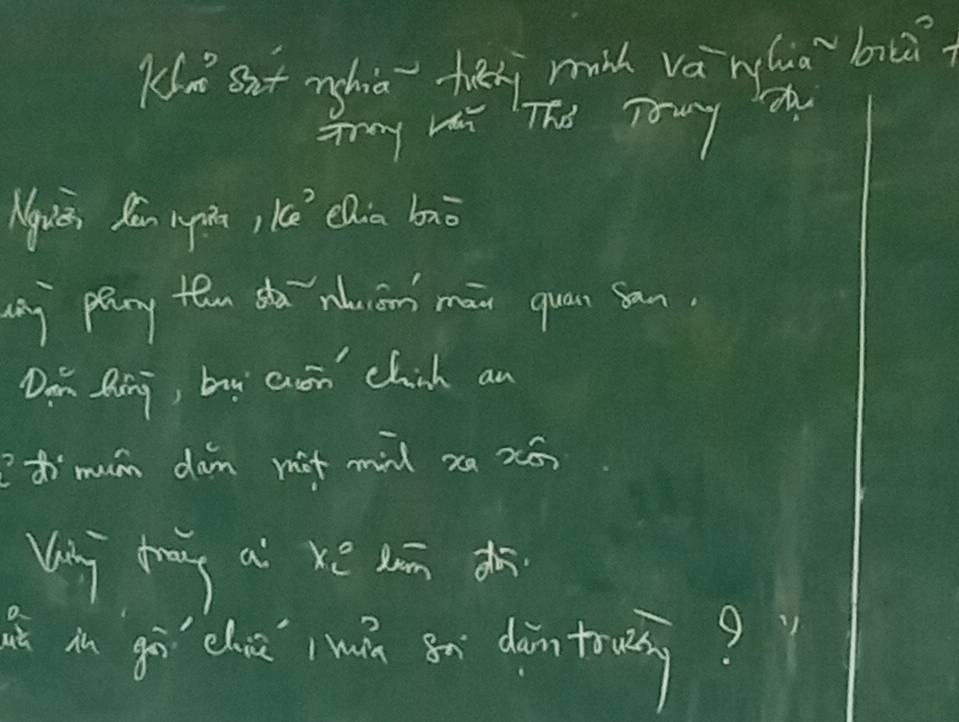 Khảo sát nghĩa tường minh và nghĩa biểu t
trong văn Thơ Trung đại
Người lên ngựa, kẻ chia bào
phong thu đã nhuốm màu quan san.
Dặm hồng, bụi cuốn chinh an
đi muôn dặm một mình xa xôi.
Vừng trăng ai xẻ làm đôi.
in gối chiếc, nửa soi dặm trường? "